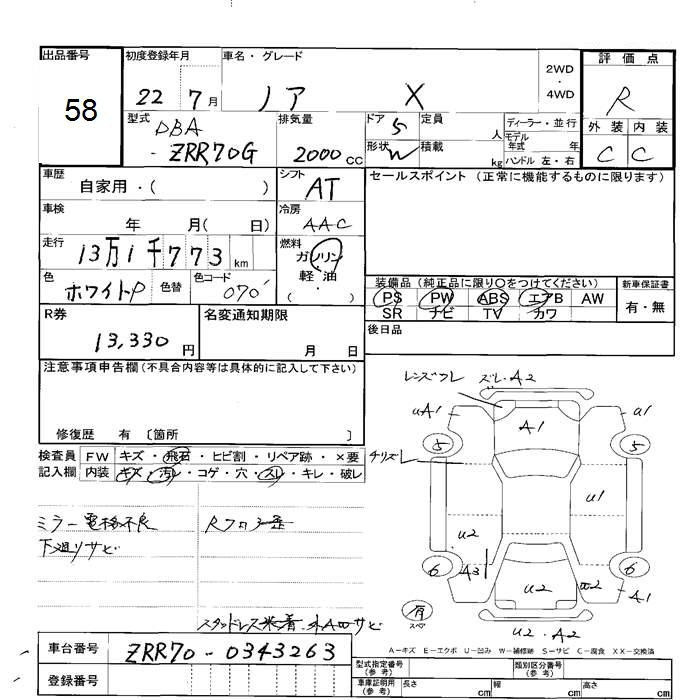 出品番号
58
初度登録年月
22 7月
車名・グレード
ノア X
2WD
・
4WD
評価点
R
外装 内装
C C
型式
DBA
-ZRR70G
排気量
2000cc
ドア
5
定員
人
形状
W
積載
kg
ディーラー・並行
モデル年式 年
ハンドル 左・右
車歴
自家用・( )
シフト
AT
セールスポイント (正常に機能するものに限ります)
車検
年 月( 日)
冷房
AAC
走行
13万1千773km
燃料
ガソリン
・
軽油
( )
色
ホワイトP
色替
色コード
070
装備品 (純正品に限り〇をつけてください)
PS PW ABS エアB AW
SR ナビ TV カワ
新車保証書
有・無
R券
13,330円
名変通知期限
月 日
後日品
注意事項申告欄 (不具合内容等は具体的に記入して下さい)
修復歴 有 〔箇所 〕
検査員
記入欄
FW キズ・飛石・ヒビ割・リペア跡・×要
内装 キズ・汚レ・コゲ・穴・スレ・キレ・破レ
ミラー電格不良
下廻りサビ
スタッドレス装着
レンズワレ
ズレ・A2
uA1
A1
a1
5
5
チリズレ
u1
u2
A3
6
6
u2
A1
有
スペア
u2・A2
A=キズ E=エクボ U=凹み W=補修跡 S=サビ C=腐食 XX=交換済
車台番号
ZRR70-0343263
登録番号
型式指定番号
(参考)
類別区分番号
(参考)
車庫証明用
(参考)
長さ cm
幅 cm
高さ cm